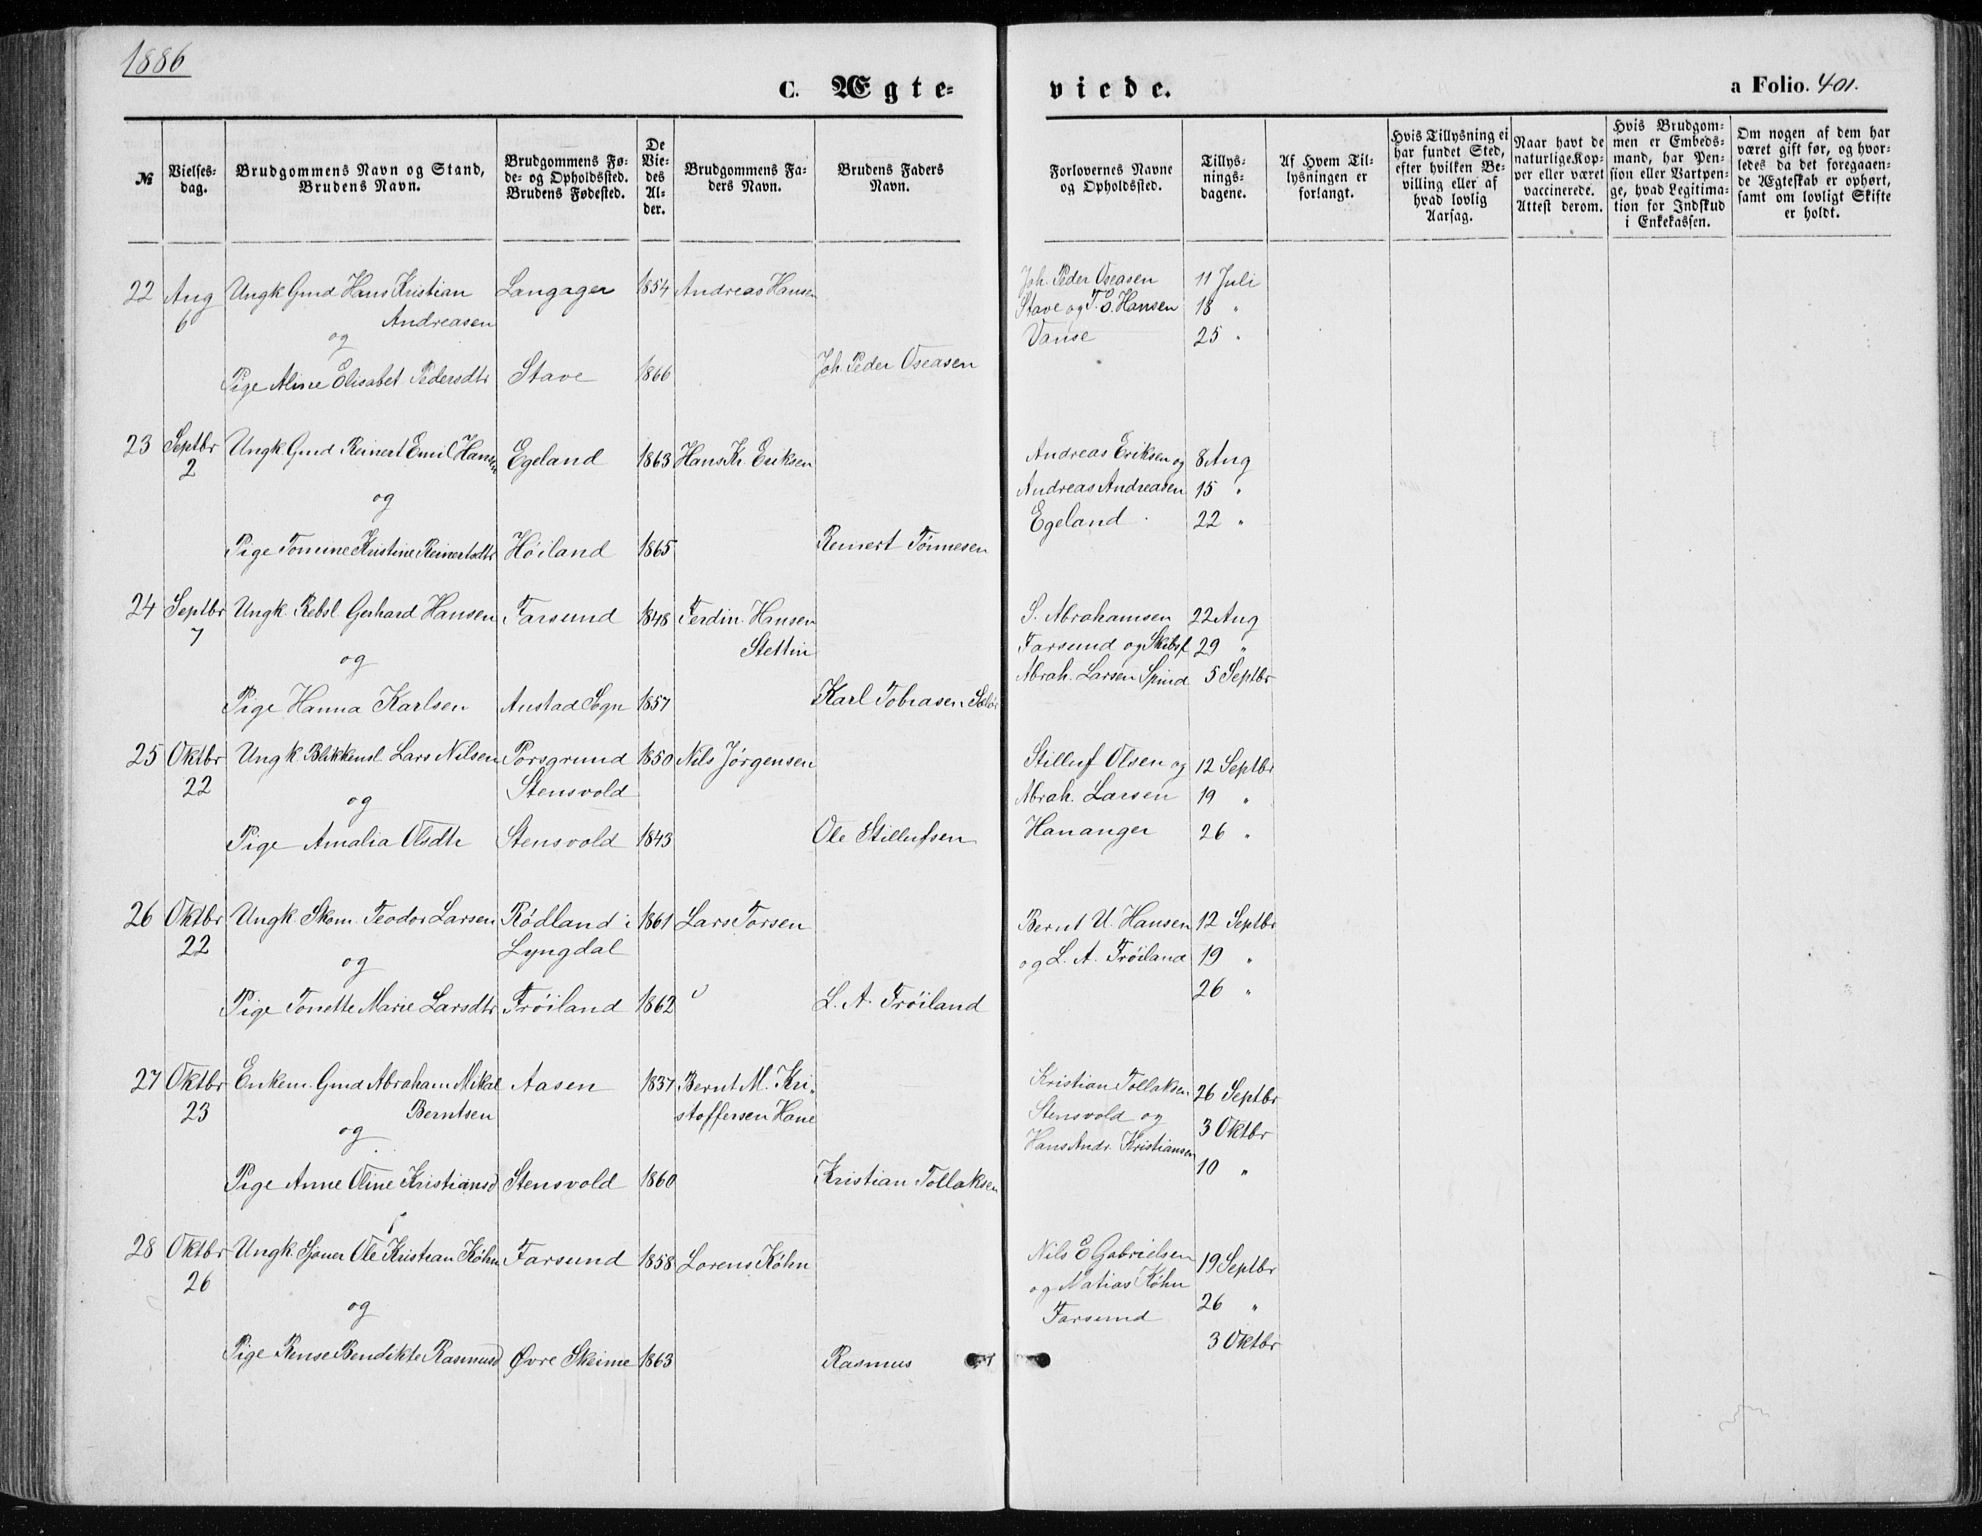 1886
C. Ægte-
viede.
a Folio. 401.
№
Vielses-
dag.
Brudgommens Navn og Stand,
Brudens Navn.
Brudgommens Fø-
de- og Opholdssted.
Brudens Fødested.
De
Vie-
des
Al-
der.
Brudgommens Fa-
ders Navn.
Brudens Faders
Navn.
Forlovernes Navne
og Opholdssted.
Tillys-
nings-
dagene.
Af Hvem Til-
lysningen er
forlangt.
Hvis Tillysning ei
har fundet Sted,
efter hvilken Be-
villing eller af
hvad lovlig
Aarsag.
Naar havt de
naturlige Kop-
per eller været
vaccinerede.
Attest derom.
Hvis Brudgom-
men er Embeds-
mand, har Pen-
sion eller Vartpen-
ge, hvad Legitima-
tion for Indskud
i Enkekassen.
Om nogen af dem har
været gift før, og hvor-
ledes da det foregaaen-
de Ægteskab er ophørt,
samt om lovligt Skifte
er holdt.
22 Aug Ungk Gmd Hans Kristian Langager 1854 Andreas Hansen Joh. Peder Oseasen 11 Juli
6 Andreasen Stave og T. O. Hansen 18 "
og Vanse 25 "
Pige Aline Elisabet Pedersdtr Stave 1866 Joh. Peder Oseasen
23 Septbr Ungk. Gmd Reinert Emil Hansen Egeland 1863 Hans Kr. Eriksen Andreas Eriksen og 8 Aug
2 og Andreas Andreasen 15 "
Egeland 22 "
Pige Tomine Kristine Reinertsdtr Høiland 1865 Reinert Tønnesen
24 Septbr Ungk. Rebsl Gerhard Hansen Farsund 1848 Ferdin. Hansen S. Abrahamsen 22 Aug
7 Stettin Farsund og Skibsf 29 "
og Abrah. Larsen Spind 5 Septbr
Pige Hanna Karlsen Austad Sogn 1857 Karl Tobiasen
25 Oktbr Ungk Blikkensl Lars Nilsen Porsgrund 1850 Nils Jørgensen Stilluf Olsen og 12 Septbr
22 og Stensvold Abrah. Larsen 19 "
Pige Amalia Olsdtr Stensvold 1843 Ole Stillufsen Hananger 26 "
26 Oktbr Ungk. Skom. Teodor Larsen Rødland i 1861 Lars Torsen Bernt U. Hansen 12 Septbr
22 og Lyngdal og L. A. Frøiland 19 "
Pige Tonette Marie Larsdtr Frøiland 1862 L. A. Frøiland 26 "
27 Oktbr Enkem. Gmd Abraham Mikal Aasen 1837 Bernt M. Kri- Kristian Tollaksen 26 Septbr
23 Berntsen stoffersen Hane Stensvold og 3 Oktbr
og Hans Andr. Kristiansen 10 "
Pige Anne Oline Kristiansd Stensvold 1860 Kristian Tollaksen
28 Oktbr Ungk. Sjøuer Ole Kristian Køhn Farsund 1858 Lorens Køhn Nils E Gabrielsen 19 Septbr
26 og Matias Køhn 26 "
og Farsund 3 Oktbr
Pige Rense Bendikte Rasmusd Øvre Skeime 1863 Rasmus